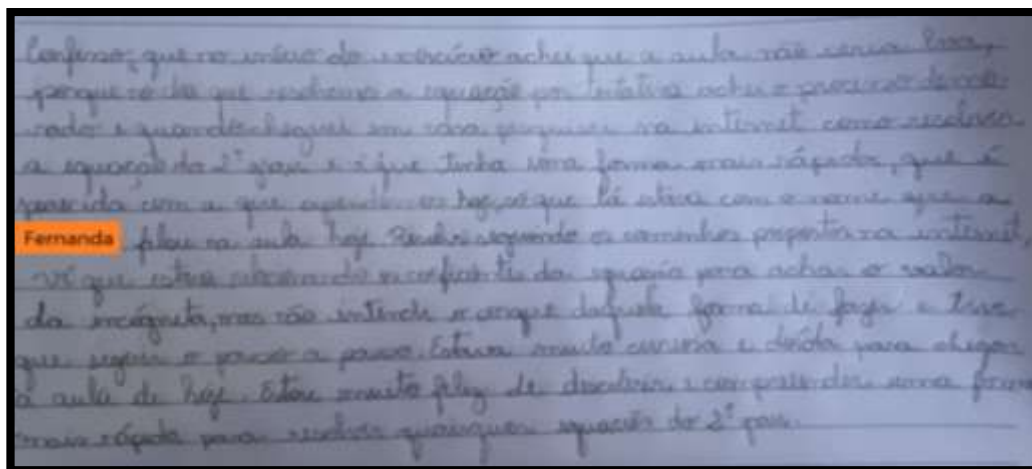 Confesso, que no início do exercício achei que a aula não seria boa,
porque no dia que resolvemos a equação por tentativa achei o processo demo-
rado e quando cheguei em casa pesquisei na internet como resolver
a equação do 2º grau e vi que tinha uma forma mais rápida, que é
parecida com a que aprendemos hoje, só que lá estava com o nome que a
Fernanda falou na aula hoje. seguindo os caminhos propostos na internet,
vi que estava relacionando os coeficientes da equação para achar o valor
da incógnita, mas não intendi o porque daquela forma de fazer e tive
que seguir o passo a passo. Estava muito curiosa e doida para chegar
a aula de hoje. Estou muito feliz de descobrir e compreender uma forma
mais rápida para resolver quaisquer equações do 2º grau.